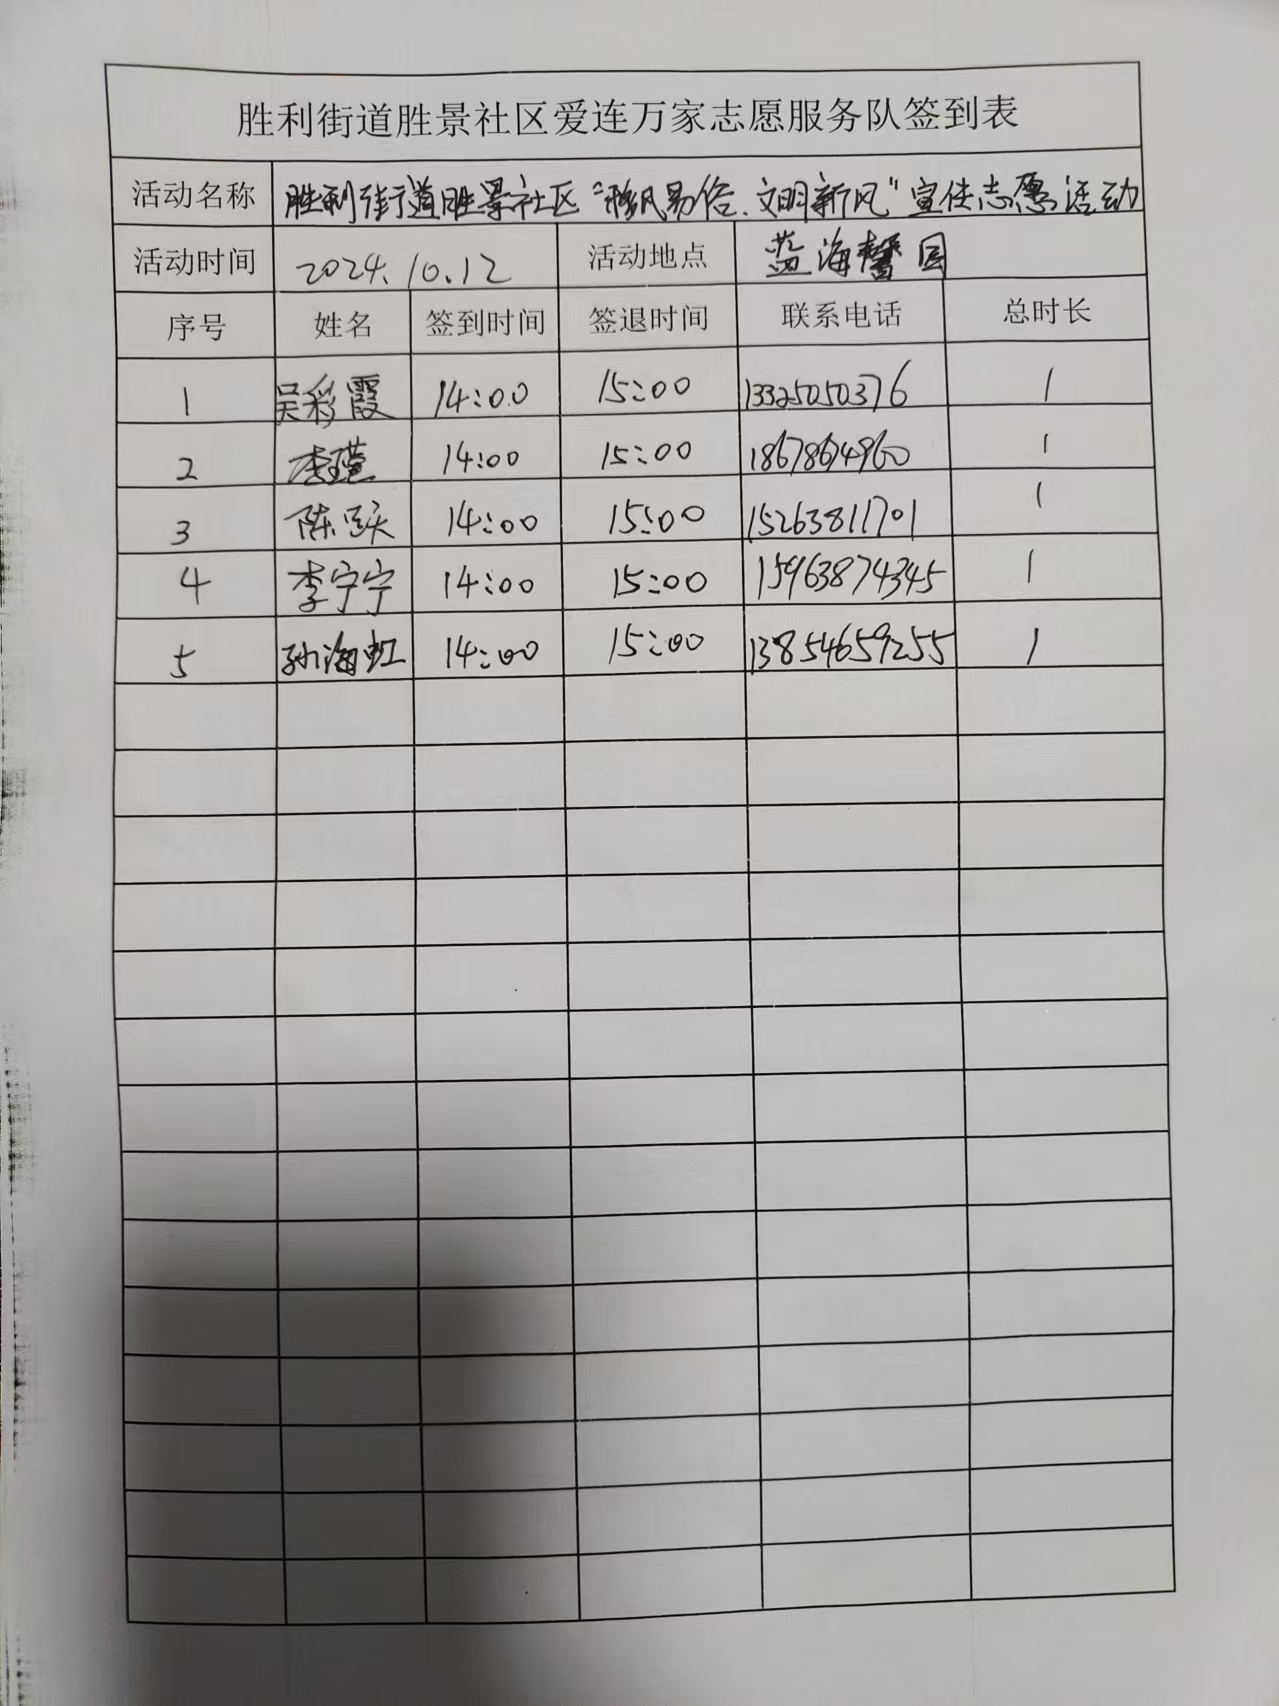 胜利街道胜景社区爱连万家志愿服务队签到表
活动名称 胜利街道胜景社区“移风易俗、文明新风”宣传志愿活动
活动时间 2024.10.12 活动地点 蓝海馨园
序号 姓名 签到时间 签退时间 联系电话 总时长
1 吴彩霞 14:00 15:00 13325050376 1
2 李瑾 14:00 15:00 18678674960 1
3 陈 14:00 15:00 15263811701 1
4 李宁宁 14:00 15:00 15963874345 1
5 孙海虹 14:00 15:00 13854659255 1